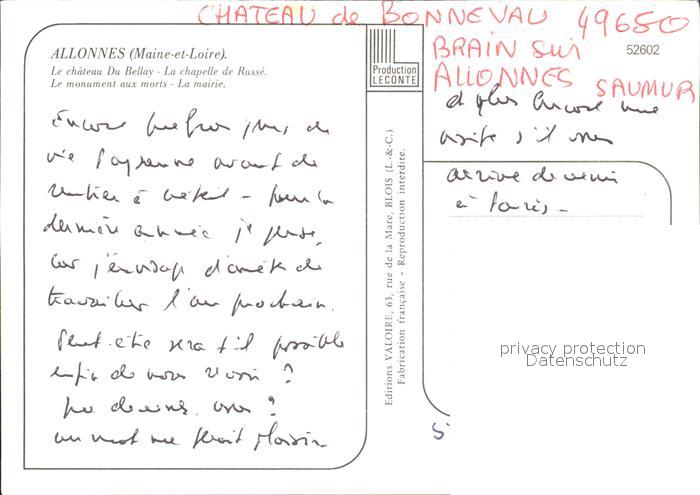 CHATEAU de BONNEVAU 49650
BRAIN sur
ALLONNES SAUMUR
52602
ALLONNES (Maine-et-Loire).
Le château Du Bellay - La chapelle de Russé.
Le monument aux morts - La mairie.
Production
LECONTE
Encore quelques jours de
vie paysanne avant de
rentrer à - pour la
dernière année je pense,
car j'envisage d'arrêter de
travailler l'an prochain.
Peut-être sera t-il possible
enfin de nous revoir ?
que devenez vous ?
un mot me ferait plaisir -
et plus encore une
visite s'il vous
arrive de venir
à Paris -
Editions VALOIRE, 63, rue de la Mare, BLOIS (L.-&-C.)
Fabrication française - Reproduction interdite.
privacy protection
Datenschutz